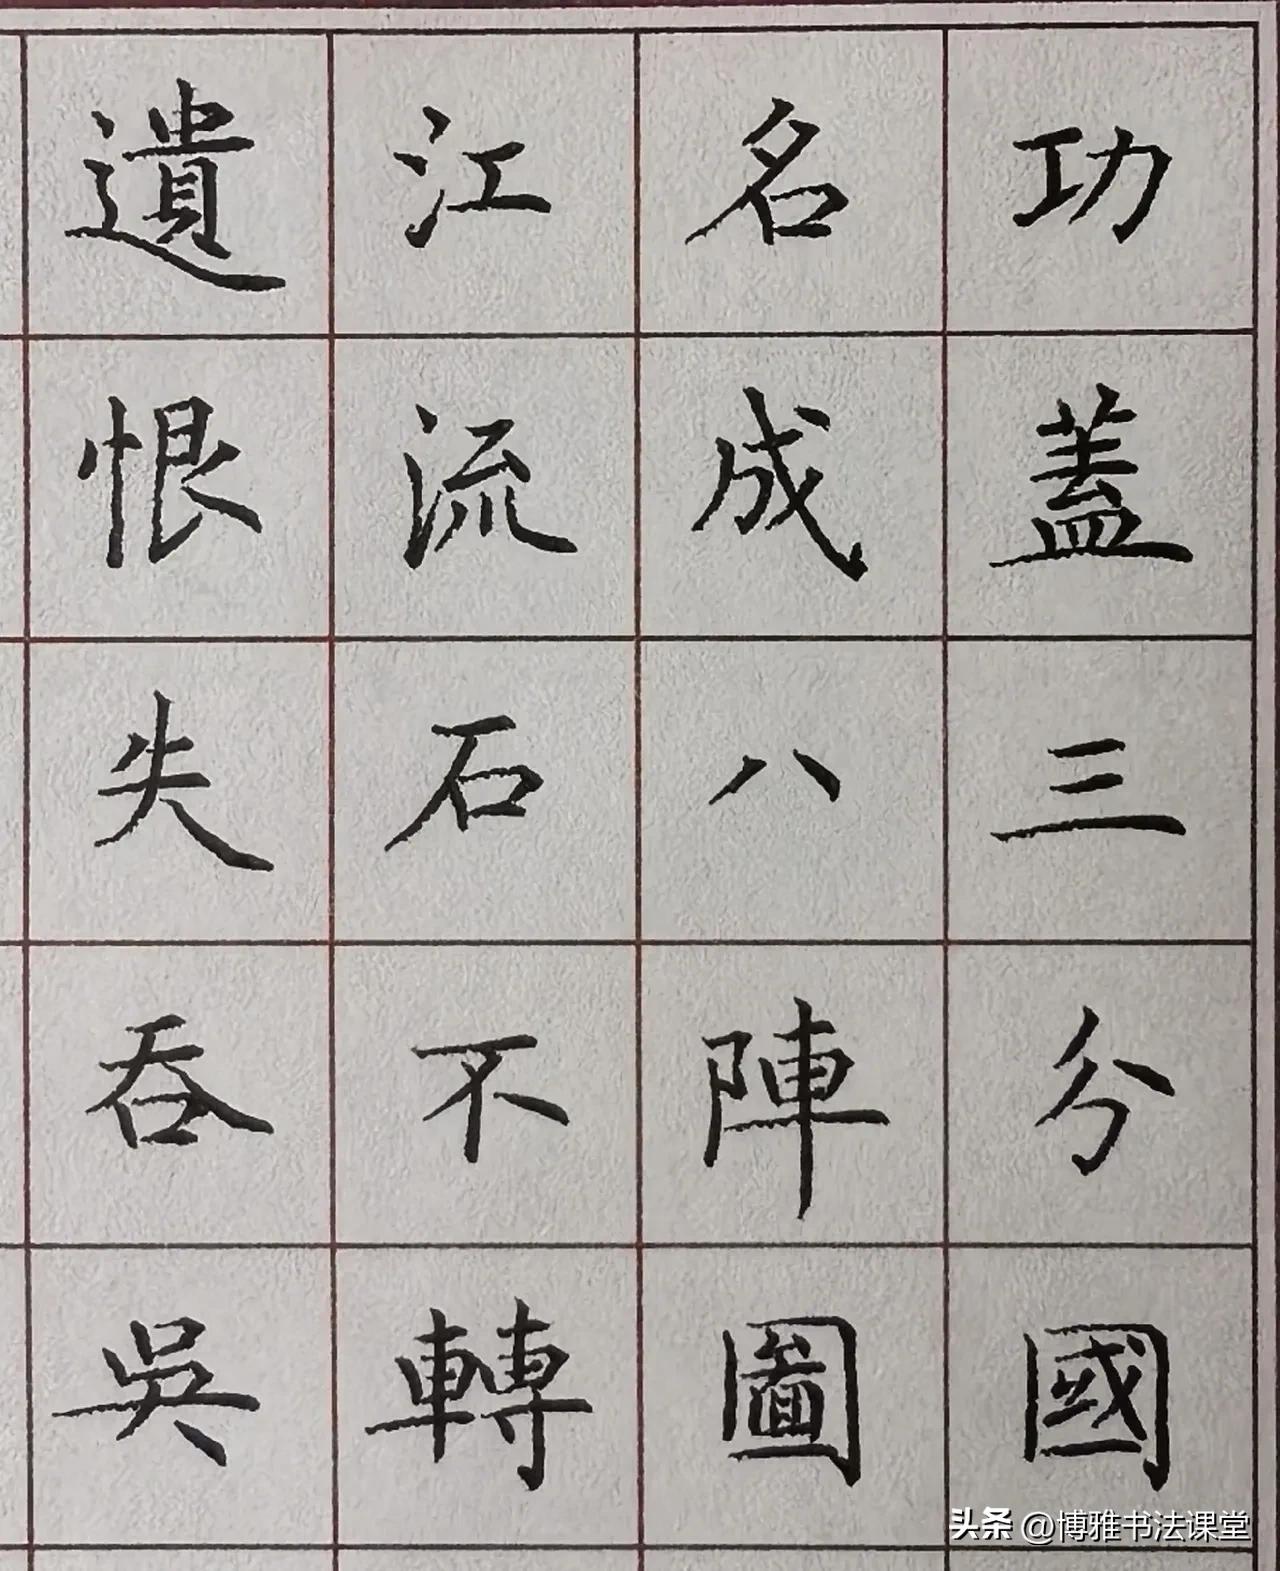 功蓋三分國
名成八陣圖
江流石不轉
遺恨失吞吳
头条 @博雅书法课堂